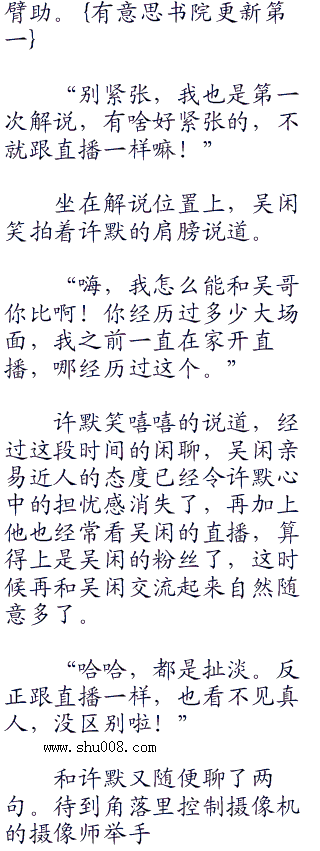 臂助。{有意思书院更新第
一}
“别紧张，我也是第一
次解说，有啥好紧张的，不
就跟直播一样嘛！”
坐在解说位置上，吴闲
笑拍着许默的肩膀说道。
“嗨，我怎么能和吴哥
你比啊！你经历过多少大场
面，我之前一直在家开直
播，哪经历过这个。”
许默笑嘻嘻的说道，经
过这段时间的闲聊，吴闲亲
易近人的态度已经令许默心
中的担忧感消失了，再加上
他也经常看吴闲的直播，算
得上是吴闲的粉丝了，这时
候再和吴闲交流起来自然随
意多了。
“哈哈，都是扯淡。反
正跟直播一样，也看不见真
人，没区别啦！”
www.shu008.com
和许默又随便聊了两
句。待到角落里控制摄像机
的摄像师举手